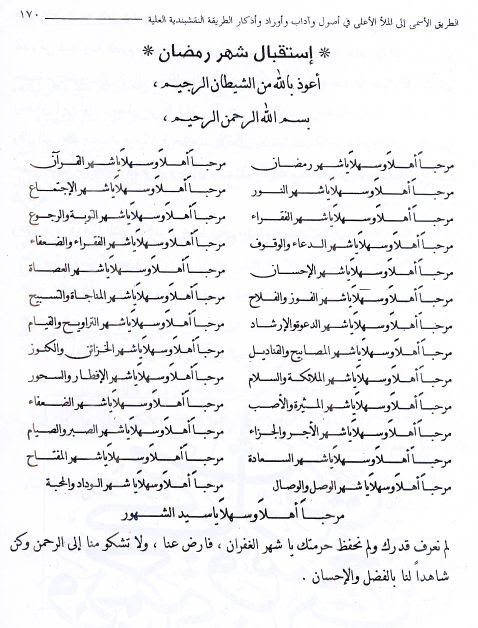 الطريق الأسمى إلى الملأ الأعلى في أصول وآداب وأوراد وأذكار الطريقة النقشبندية العلية ١٧٠
* إستقبال شهر رمضان *
أعوذ بالله من الشيطان الرجيم ،
بسم الله الرحمن الرحيم ،
مرحباً أهلاً وسهلاً يا شهر رمضان مرحباً أهلاً وسهلاً يا شهر القرآن
مرحباً أهلاً وسهلاً يا شهر النور مرحباً أهلاً وسهلاً يا شهر الإجتماع
مرحباً أهلاً وسهلاً يا شهر الفقراء مرحباً أهلاً وسهلاً يا شهر التوبة والرجوع
مرحباً أهلاً وسهلاً يا شهر الدعاء والوقوف مرحباً أهلاً وسهلاً يا شهر الفقراء والضعفاء
مرحباً أهلاً وسهلاً يا شهر الإحسان مرحباً أهلاً وسهلاً يا شهر العصاة
مرحباً أهلاً وسهلاً يا شهر الفوز والفلاح مرحباً أهلاً وسهلاً يا شهر المناجاة والتسبيح
مرحباً أهلاً وسهلاً يا شهر الدعوة والإرشاد مرحباً أهلاً وسهلاً يا شهر التراويح والقيام
مرحباً أهلاً وسهلاً يا شهر المصابيح والقناديل مرحباً أهلاً وسهلاً يا شهر الخزائن والكنوز
مرحباً أهلاً وسهلاً يا شهر الملائكة والسلام مرحباً أهلاً وسهلاً يا شهر الإفطار والسحور
مرحباً أهلاً وسهلاً يا شهر مرحباً أهلاً وسهلاً يا شهر الضعفاء
مرحباً أهلاً وسهلاً يا شهر الأجر والجزاء مرحباً أهلاً وسهلاً يا شهر الصبر والصيام
مرحباً أهلاً وسهلاً يا شهر السعادة مرحباً أهلاً وسهلاً يا شهر المفتاح
مرحباً أهلاً وسهلاً يا شهر الوصل والوصال مرحباً أهلاً وسهلاً يا شهر الوداد والمحبة
مرحباً أهلاً وسهلاً يا سيد الشهور
لم نعرف قدرك ولم نحفظ حرمتك يا شهر الغفران ، فارض عنا ، ولا تشكو منا إلى الرحمن وكن
شاهداً لنا بالفضل والإحسان .